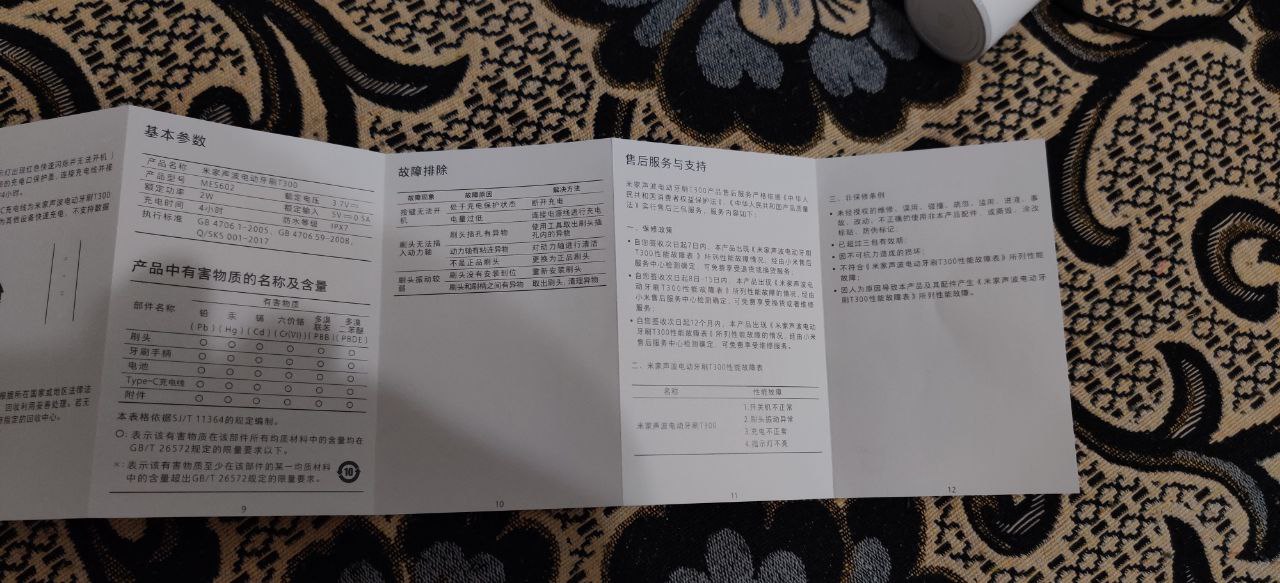 示灯出现红色快速闪烁并无法开机）
的充电口保护盖，连接充电线并接
4小时。
C充电线为米家声波电动牙刷T300
为其他设备快速充电，不支持数据
根据所在国家或地区法律法
回收利用妥善处理。若无
指定的回收中心。
基本参数
产品名称 米家声波电动牙刷T300
产品型号 MES602 额定电压 3.7V
额定功率 2W 额定输入 5V 0.5A
充电时间 4小时 防水等级 IPX7
执行标准 GB 4706.1-2005、GB 4706.59-2008、
Q/SKS 001-2017
产品中有害物质的名称及含量
部件名称 有害物质
铅 汞 镉 六价铬 多溴联苯 多溴二苯醚
(Pb) (Hg) (Cd) (Cr(VI)) (PBB) (PBDE)
刷头 ○ ○ ○ ○ ○ ○
牙刷手柄 ○ ○ ○ ○ ○ ○
电池 ○ ○ ○ ○ ○ ○
Type-C充电线 ○ ○ ○ ○ ○ ○
附件 ○ ○ ○ ○ ○ ○
本表格依据SJ/T 11364的规定编制。
○：表示该有害物质在该部件所有均质材料中的含量均在
GB/T 26572规定的限量要求以下。
×：表示该有害物质至少在该部件的某一均质材料
中的含量超出GB/T 26572规定的限量要求。
10
9
故障排除
故障现象 故障原因 解决方法
按键无法开机 处于充电保护状态 断开充电
电量过低 连接电源线进行充电
刷头无法插入动力轴 刷头插孔有异物 使用工具取出刷头插孔内的异物
动力轴有粘连异物 对动力轴进行清洁
不是正品刷头 更换为正品刷头
刷头振动较弱 刷头没有安装到位 重新安装刷头
刷头和刷柄之间有异物 取出刷头，清理异物
10
售后服务与支持
米家声波电动牙刷T300产品售后服务严格依据《中华人
民共和国消费者权益保护法》、《中华人民共和国产品质量
法》实行售后三包服务，服务内容如下：
一、保修政策
• 自您签收次日起7日内，本产品出现《米家声波电动牙刷
T300性能故障表》所列性能故障情况，经由小米售后
服务中心检测确定，可免费享受退货或换货服务；
• 自您签收次日起8日-15日内，本产品出现《米家声波电
动牙刷T300性能故障表》所列性能故障的情况，经由
小米售后服务中心检测确定，可免费享受换货或者维修
服务；
• 自您签收次日起12个月内，本产品出现《米家声波电动
牙刷T300性能故障表》所列性能故障的情况，经由小米
售后服务中心检测确定，可免费享受维修服务。
二、米家声波电动牙刷T300性能故障表
名称 性能故障
米家声波电动牙刷T300
1.开关机不正常
2.刷头振动异常
3.充电不正常
4.指示灯不亮
11
三、非保修条例
• 未经授权的维修、误用、碰撞、疏忽、滥用、进液、事
故、改动、不正确的使用非本产品配件，或撕毁、涂改
标贴、防伪标记；
• 已超过三包有效期；
• 因不可抗力造成的损坏；
• 不符合《米家声波电动牙刷T300性能故障表》所列性能
故障；
• 因人为原因导致本产品及其配件产生《米家声波电动牙
刷T300性能故障表》所列性能故障。
12